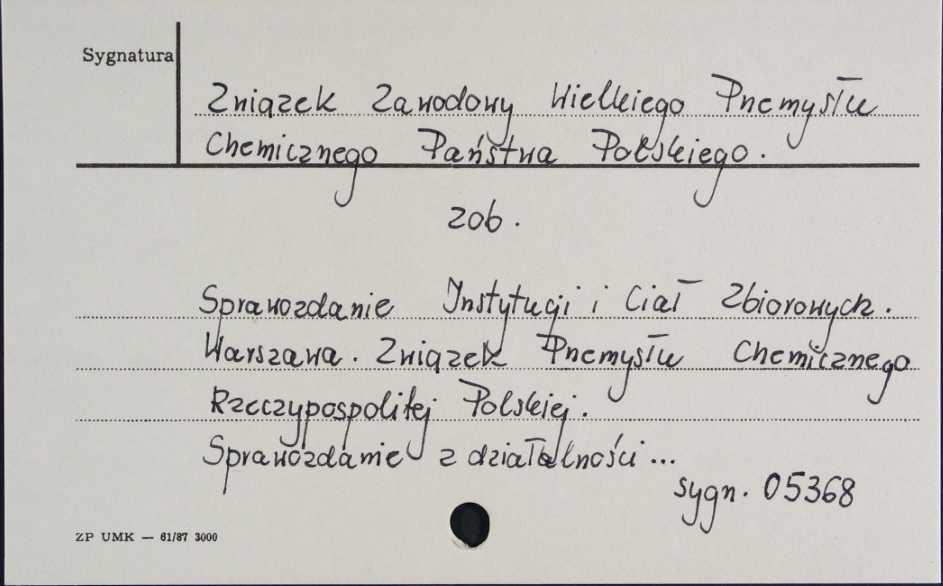 Sygnatura
Związek Zawodowy Wielkiego Przemysłu
Chemicznego Państwa Polskiego.
zob.
Sprawozdanie Instytucji i Ciał Zbiorowych.
Warszawa. Związek Przemysłu Chemicznego
Rzeczypospolitej Polskiej.
Sprawozdanie z działalności...
sygn. 05368
ZP UMK — 61/87 3000